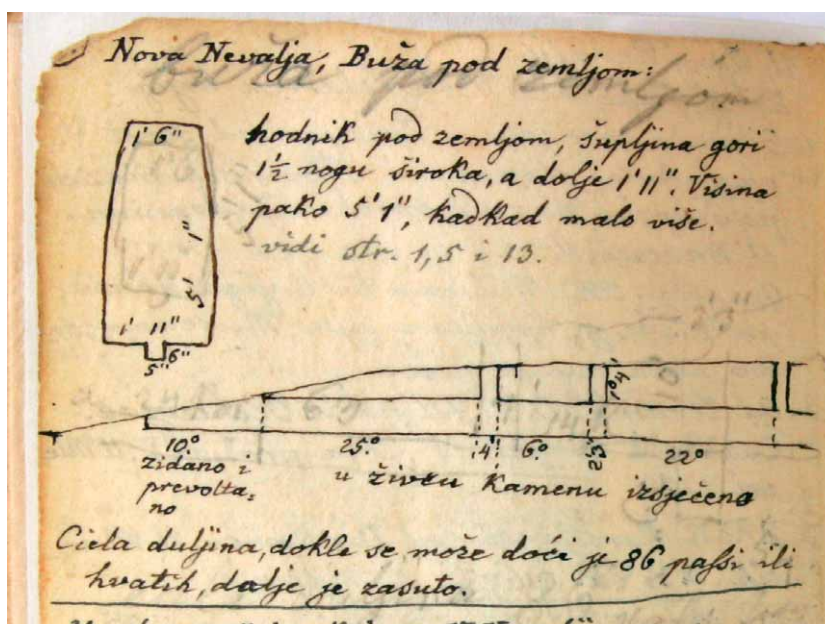 Nova Nevalja, Buža pod zemljom:
1' 6"
hodnik pod zemljom, šupljina gori
1½ nogu široka, a dolje 1' 11". Visina
pako 5' 1", kadkad malo više.
vidi str. 1, 5 i 13.
5' 1"
1' 11"
6"
5"
1° 4'
10° 25° 4' 6° 2' 3" 22°
zidano i
prevolta-
no
u živcu kamenu izsječeno
Ciela duljina, dokle se može doći je 86 passi ili
hvatih, dalje je zasuto.